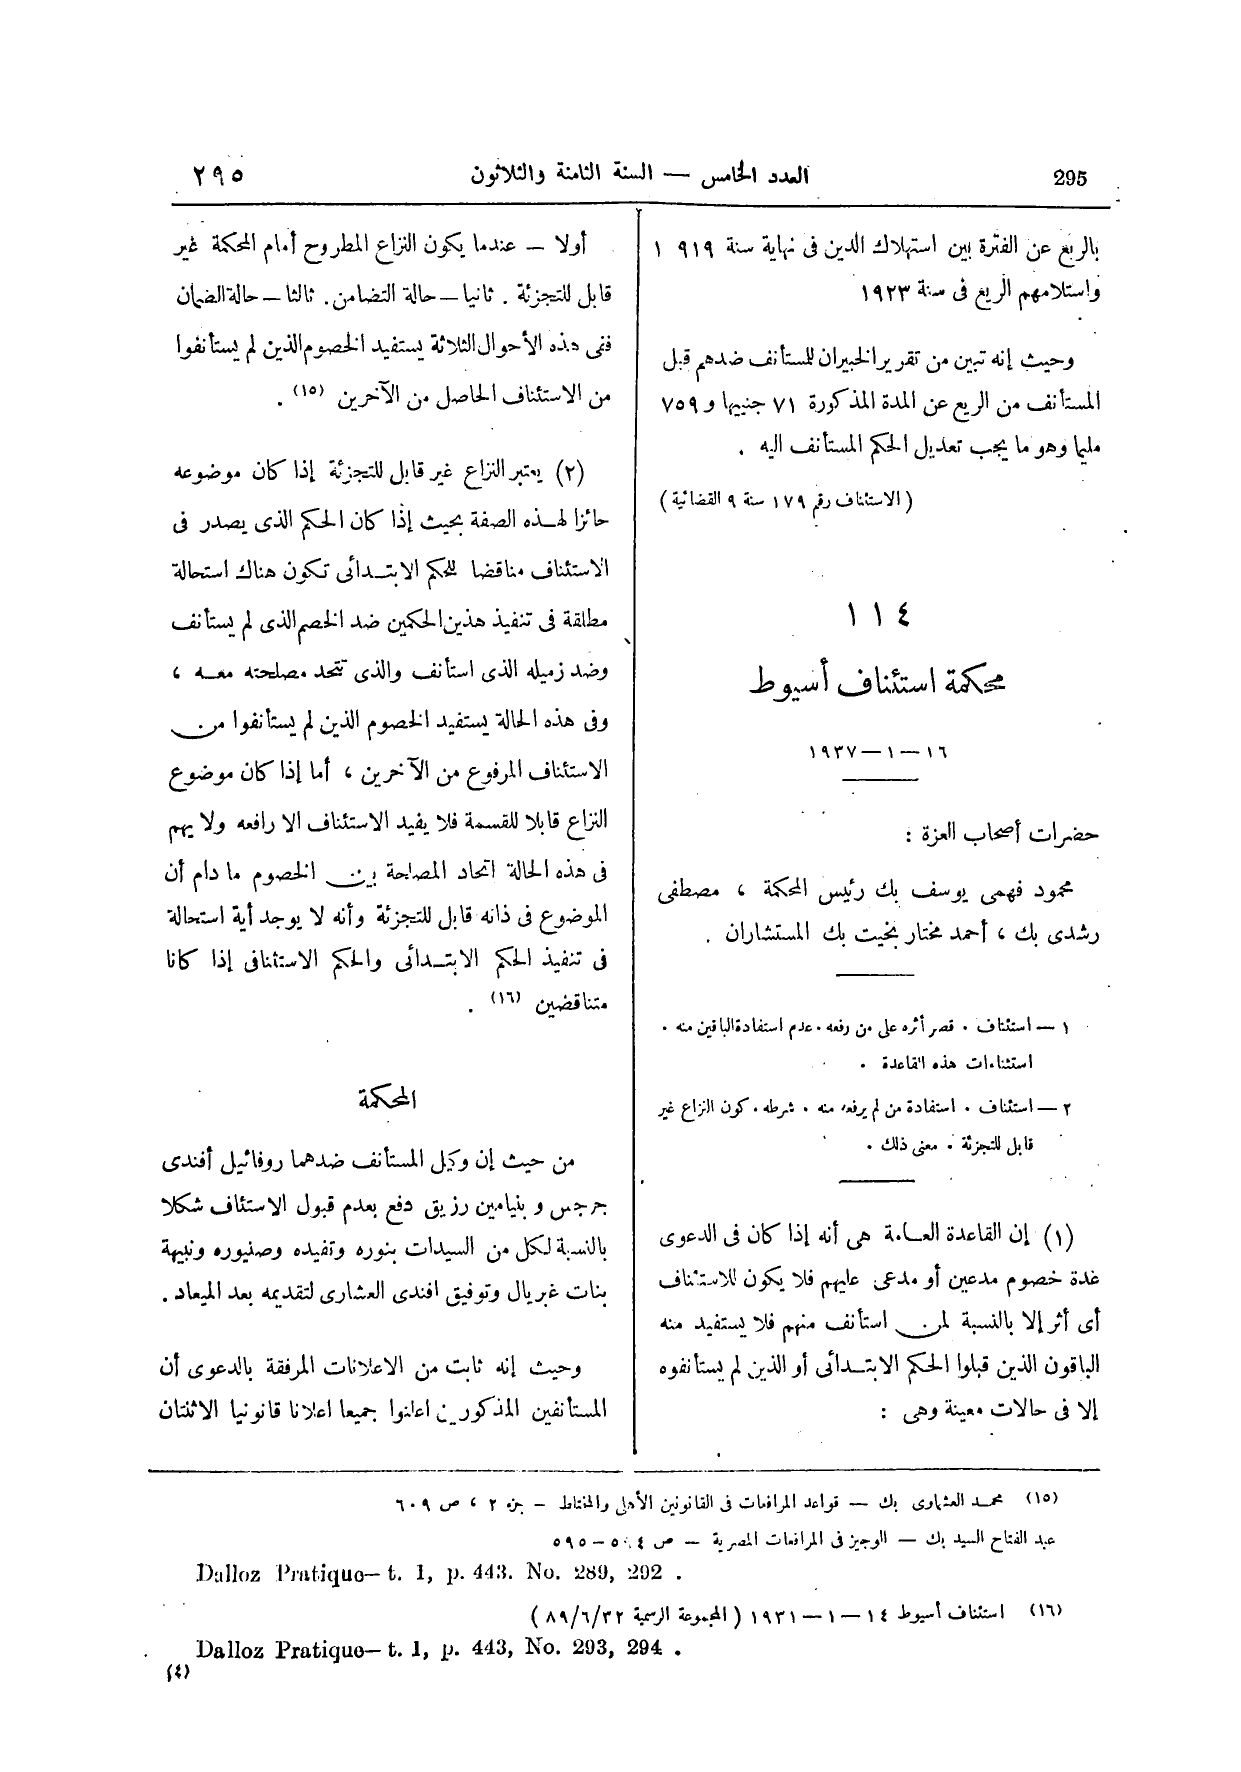 295 العدد الخامس — السنة الثامنة والثلاثون ٢٩٥
بالريع عن الفترة بين استهلاك الدين فى نهاية سنة ١٩١٩
واستلامهم الريع فى سنة ١٩٢٣
وحيث إنه تبين من تقرير الخبيران للمستأنف ضدهم قبل
المستأنف من الريع عن المدة المذكورة ٧١ جنيها و ٧٥٩
مليما وهو ما يجب تعديل الحكم المستأنف اليه .
( الاستئناف رقم ١٧٩ سنة ٩ القضائية )
١١٤
محكمة استئناف أسيوط
١٦ — ١ — ١٩٣٧
حضرات أصحاب العزة :
محمود فهمى يوسف بك رئيس المحكمة ، مصطفى
رشدى بك ، أحمد مختار بخيت بك المستشاران .
١ — استئناف . قصر أثره على من رفعه . عدم استفادة الباقين منه .
استثناءات هذه القاعدة .
٢ — استئناف . استفادة من لم يرفعه منه . شرطه . كون النزاع غير
قابل للتجزئة . معنى ذلك .
(١) إن القاعدة العامة هى أنه إذا كان فى الدعوى
عدة خصوم مدعين أو مدعى عليهم فلا يكون للاستئناف
أى أثر إلا بالنسبة لمن استأنف منهم فلا يستفيد منه
الباقون الذين قبلوا الحكم الابتدائى أو الذين لم يستأنفوه
إلا فى حالات معينة وهى :
أولا — عندما يكون النزاع المطروح أمام المحكمة غير
قابل للتجزئة . ثانيا — حالة التضامن . ثالثا — حالة الضمان
ففى هذه الأحوال الثلاثة يستفيد الخصوم الذين لم يستأنفوا
من الاستئناف الحاصل من الآخرين (١٥) .
(٢) يعتبر النزاع غير قابل للتجزئة إذا كان موضوعه
حائزا لهذه الصفة بحيث إذا كان الحكم الذى يصدر فى
الاستئناف مناقضا للحكم الابتدائى تكون هناك استحالة
مطلقة فى تنفيذ هذين الحكمين ضد الخصم الذى لم يستأنف
وضد زميله الذى استأنف والذى تتحد مصلحته معه ،
وفى هذه الحالة يستفيد الخصوم الذين لم يستأنفوا من
الاستئناف المرفوع من الآخرين ، أما إذا كان موضوع
النزاع قابلا للقسمة فلا يفيد الاستئناف الا رافعه ولا يهم
فى هذه الحالة اتحاد المصلحة بين الخصوم ما دام أن
الموضوع فى ذاته قابل للتجزئة وأنه لا يوجد أية استحالة
فى تنفيذ الحكم الابتدائى والحكم الاستئنافى إذا كانا
متناقضين (١٦) .
المحكمة
من حيث إن وكيل المستأنف ضدهما روفائيل أفندى
جرجس و بنيامين رزيق دفع بعدم قبول الاستئناف شكلا
بالنسبة لكل من السيدات بنوره وتفيده وصنيوره ونبيهة
بنات غبريال وتوفيق افندى العشارى لتقديمه بعد الميعاد .
وحيث إنه ثابت من الاعلانات المرفقة بالدعوى أن
المستأنفين المذكورين اعلنوا جميعا اعلانا قانونيا الاثنتان
(١٥) محمد العشماوى بك — قواعد المرافعات فى القانونين الأهلى والمختلط — جزء ٢ ، ص ٦٠٩
عبد الفتاح السيد بك — الوجيز فى المرافعات المصرية — ص ٥٠٤ — ٥٩٥
Dalloz Pratique— t. 1, p. 443. No. 289, 292 .
(١٦) استئناف أسيوط ١٤ — ١ — ١٩٣١ ( المجموعة الرسمية ٨٩/٦/٣٢ )
Dalloz Pratique— t. 1, p. 443, No. 293, 294 .
(٤)